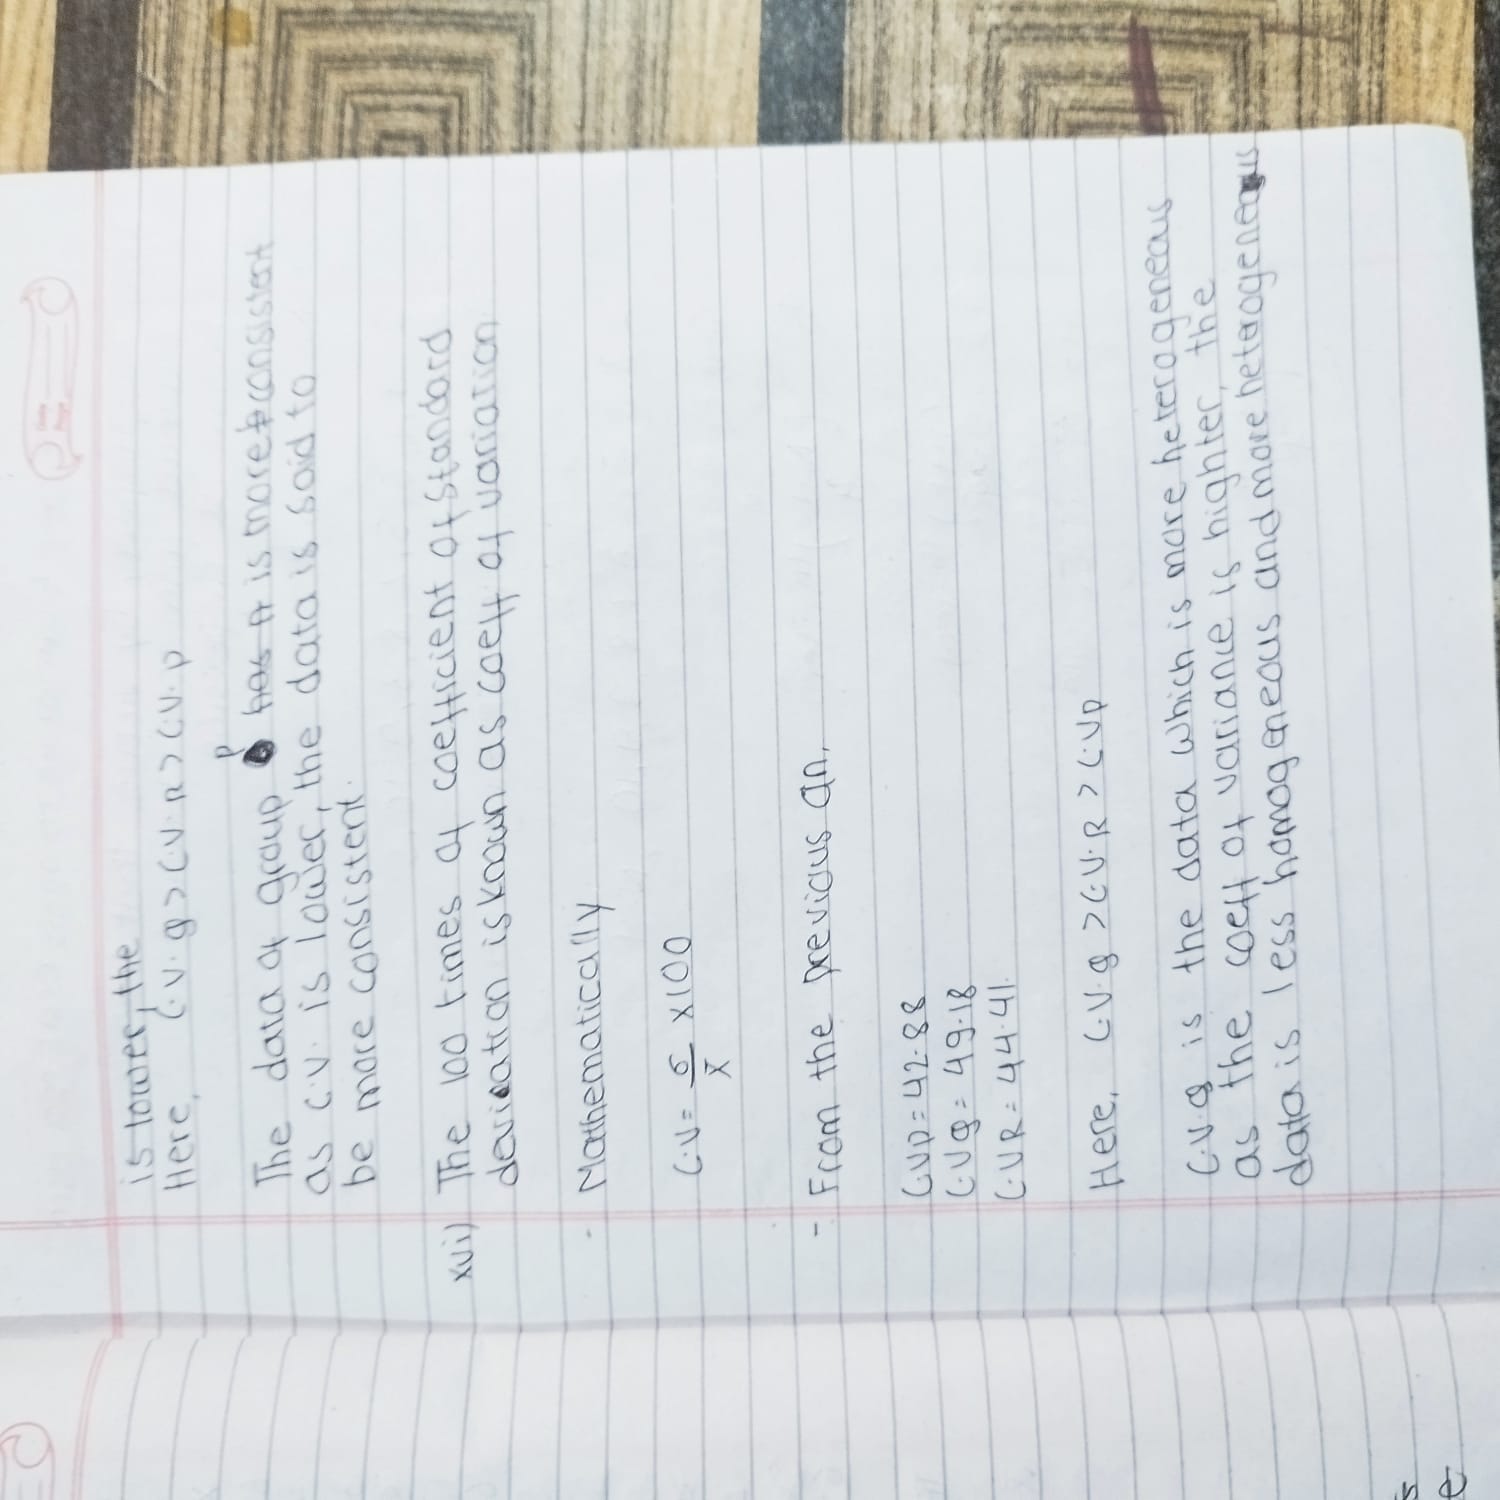 is lower, the
Here, C.V. Q > C.V. R > C.V. P
The data of group P has it is more consistent
as C.V. is lower, the data is said to
be more consistent.
xvi) The 100 times of coefficient of standard
devication is known as coeff of variation
- Mathematically
C.V = σ/x̄ ×100
- From the previous qn,
C.VP = 42.88
C.VQ = 49.18
C.VR = 44.41.
Here, C.V.Q > C.V.R > C.VP
C.V.Q is the data which is more heterogeneous
as the coeff of variance is highter, the
data is less homogeneous and more heterogeneous
s
e